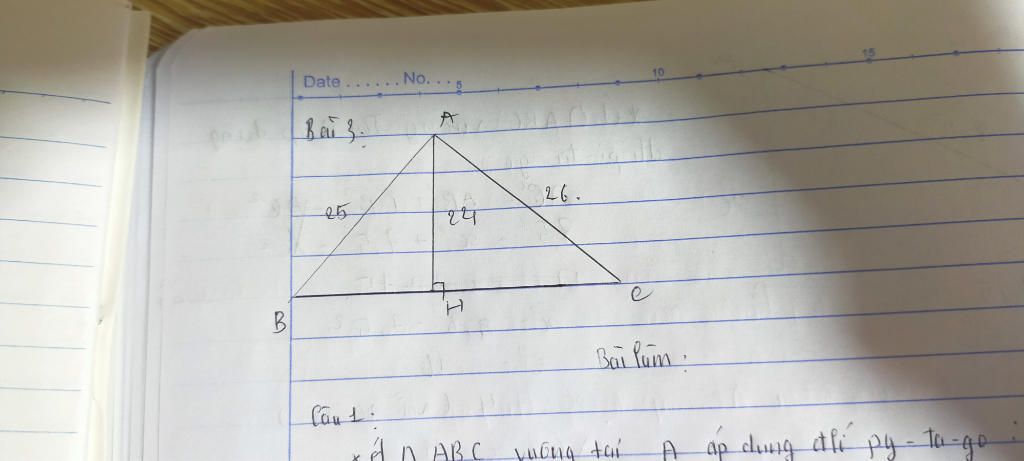 Date ...... No. ... 5 10 15
Bài 3:
A
25 24 26.
B H C
Bài làm:
Câu 1:
xét Δ ABC vuông tại A áp dụng đlí py-ta-go: